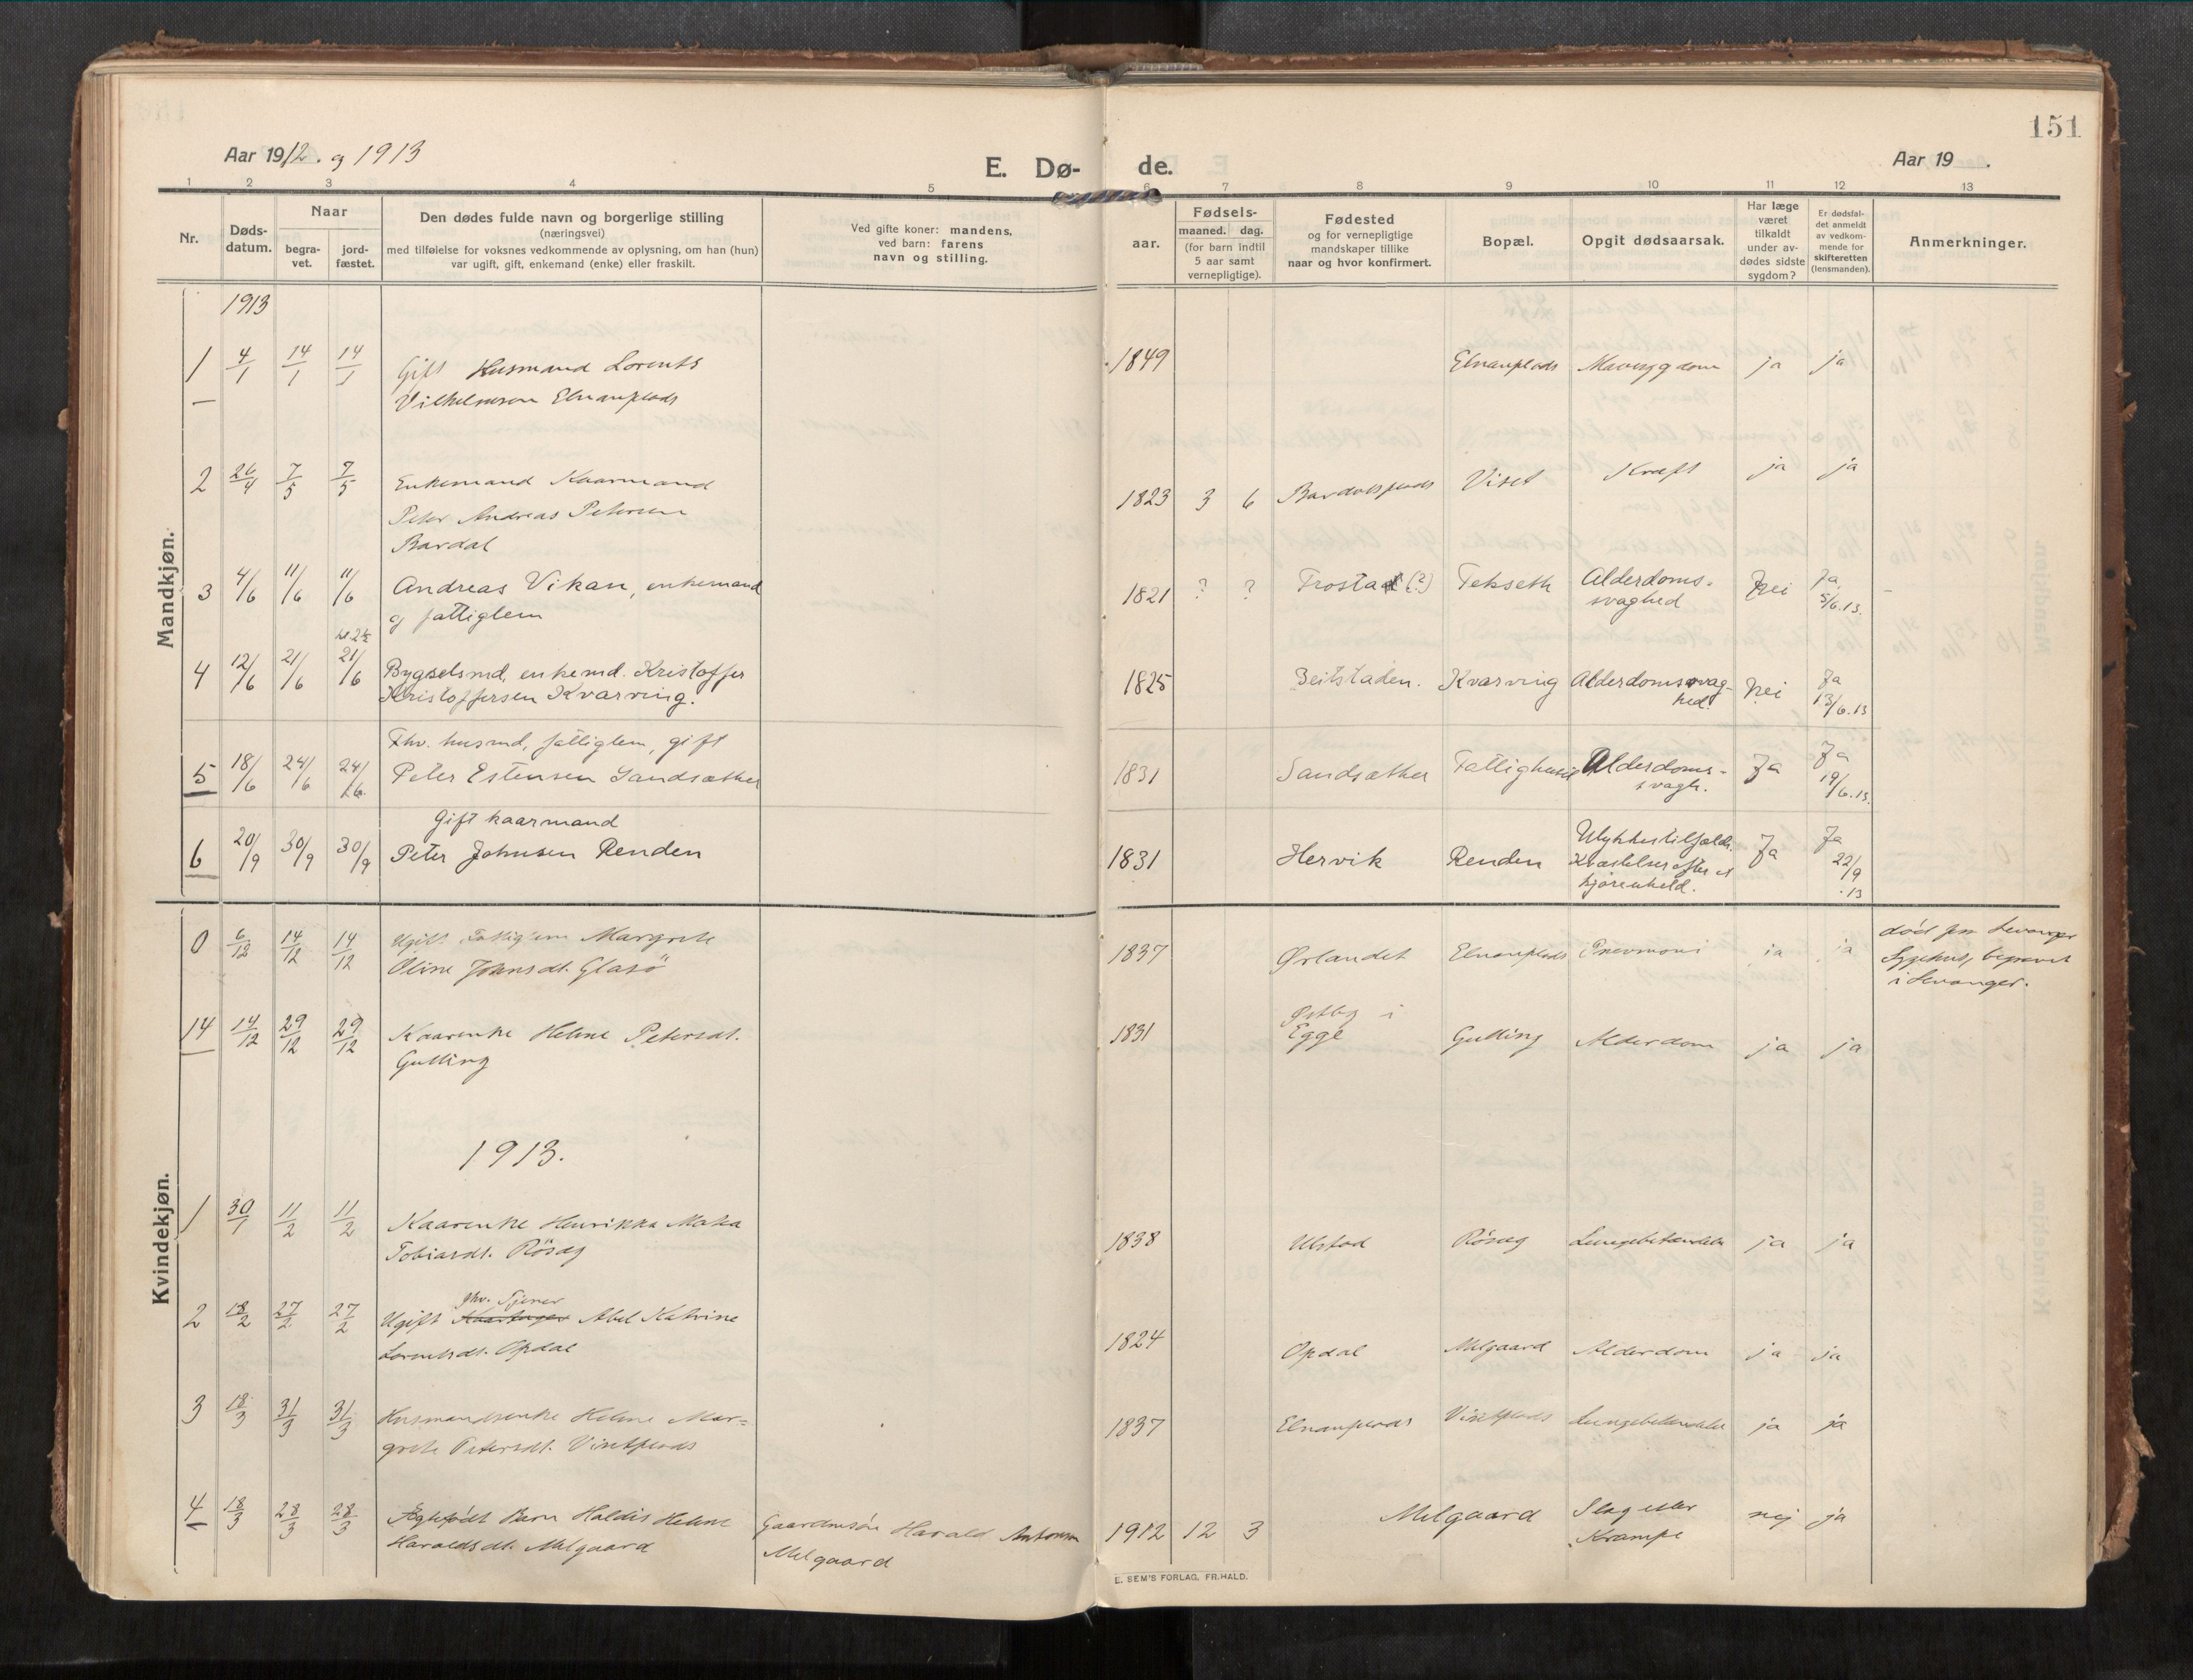 151
Aar 1912. og 1913
E. Dø- de.
Aar 19 .
1 2 3 4 5 6 7 8 9 10 11 12 13
Nr.
Døds-
datum.
Naar
begra-
vet.
jord-
fæstet.
Den dødes fulde navn og borgerlige stilling
(næringsvei)
med tilføielse for voksnes vedkommende av oplysning, om han (hun)
var ugift, gift, enkemand (enke) eller fraskilt.
Ved gifte koner: mandens,
ved barn: farens
navn og stilling.
aar.
Fødsels-
maaned. dag.
(for barn indtil
5 aar samt
vernepligtige).
Fødested
og for vernepligtige
mandskaper tillike
naar og hvor konfirmert.
Bopæl.
Opgit dødsaarsak.
Har læge
været
tilkaldt
under av-
dødes sidste
sygdom?
Er dødsfal-
det anmeldt
av vedkom-
mende for
skifteretten
(lensmanden).
Anmerkninger.
Mandkjøn.
1913
1 4/1 14/1 14/1 Gift Husmand Lorents 1849 Elnanplads Mavesygdom ja ja
Vilhelmsen Elnanplads
2 26/4 7/5 7/5 Enkemand Kaarmand 1823 3 6 Bardalsplads Viset Kræft ja ja
Peter Andreas Petersen
Bardal
3 4/6 11/6 11/6 Andreas Vikan, enkemand 1821 ? ? Frosta (?) Tekseth Alderdoms- Nei Ja
og fattiglem svaghed 5/6.13.
4 12/6 21/6 21/6 Bygselsmd, enkemd. Kristoffer 1825 Beitstaden. Kvarving Alderdomssvag- Nei Ja
Kristoffersen Kvarving. hed. 13/6.13
Fhv. husmd, fattiglem, gift
5 18/6 24/6 24/6 Peter Estensen Sandsæther 1831 Sandsæther Fattighuset Alderdoms- Ja Ja
svagh. 19/6.13.
Gift kaarmand
6 20/9 30/9 30/9 Peter Johnsen Renden 1831 Hervik Renden Ulykkestilfælde. Ja Ja
Kvæstelser efter et 22/9
kjøreuheld. .13
Kvindekjøn.
0 6/12 14/12 14/12 Ugift Fattiglem Margrete 1837 Ørlandet Elnanplads Pnevmoni ja ja død paa Levanger
Oline Johnsdt. Glasö Sygehus, begravet
i Levanger.
14 14/12 29/12 29/12 Kaarenke Helene Petersdt. 1831 Østby i Gulling Alderdom ja ja
Gulling Egge
1913.
1 30/1 11/2 11/2 Kaarenke Henrikka Maka 1838 Ulstad Rösæg Lungebetændelse ja ja
Tobiasdt. Rösæg
fhv. Tjener
2 18/2 27/2 27/2 Ugift Abel Katrine 1824 Opdal Melgaard Alderdom ja ja
Lorntsdt. Opdal
3 18/3 31/3 31/3 Husmandsenke Helene Mar= 1837 Elnanplads Visetplads Lungebetændelse ja ja
grete Petersdt. Visetplads
4 18/3 28/3 28/3 Ægtefødt Barn Haldis Helene Gaardmsön Harald Antonsen 1912 12 3 Melgaard Slag eller nej ja
Haraldsdt. Melgaard Melgaard Krampe
E. SEM'S FORLAG, FR.HALD.